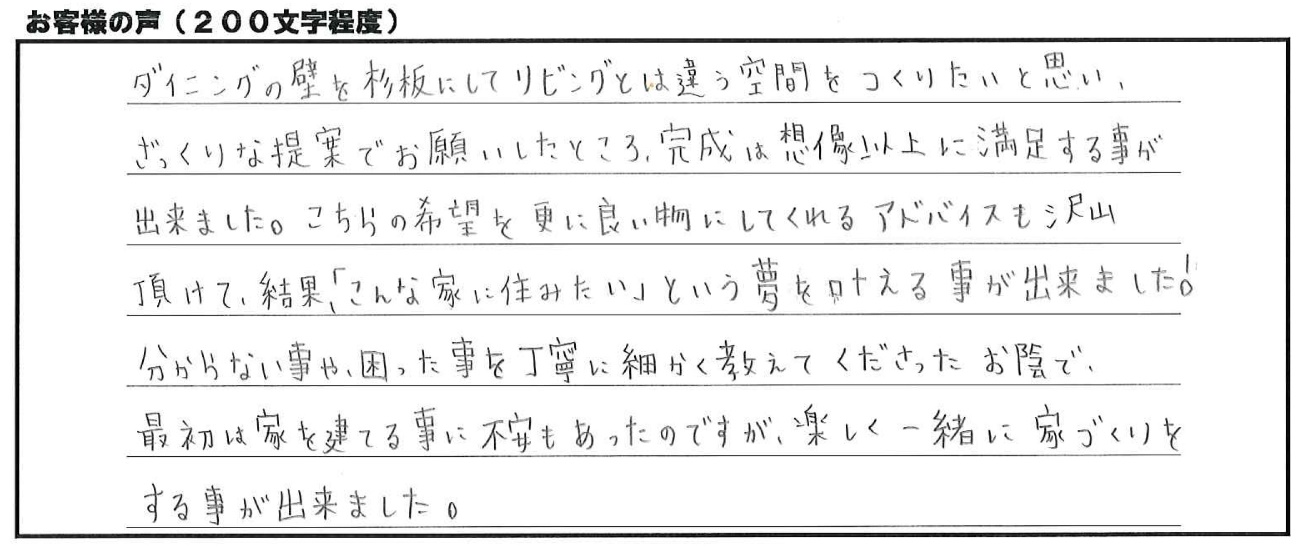 お客様の声（２００文字程度）
ダイニングの壁を杉板にしてリビングとは違う空間をつくりたいと思い、
ざっくりな提案でお願いしたところ、完成は想像以上に満足する事が
出来ました。こちらの希望を更に良い物にしてくれるアドバイスも沢山
頂けて、結果、「こんな家に住みたい」という夢を叶える事が出来ました!。
分からない事や、困った事を丁寧に細かく教えてくださったお陰で、
最初は家を建てる事に不安もあったのですが、楽しく一緒に家づくりを
する事が出来ました。